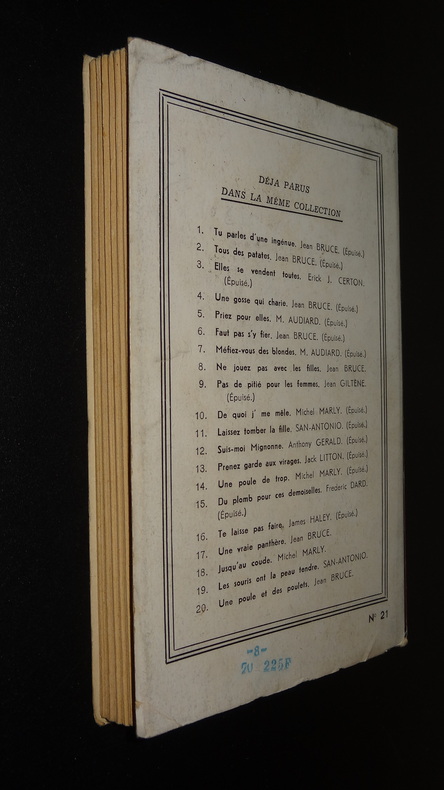 DÉJA PARUS
DANS LA MÊME COLLECTION
1. Tu parles d'une ingénue. Jean BRUCE. (Épuisé.)
2. Tous des patates. Jean BRUCE. (Épuisé.)
3. Elles se vendent toutes. Erick J. CERTON.
(Épuisé.)
4. Une gosse qui charie. Jean BRUCE. (Épuisé.)
5. Priez pour elles. M. AUDIARD. (Épuisé.)
6. Faut pas s'y fier. Jean BRUCE. (Épuisé.)
7. Méfiez-vous des blondes. M. AUDIARD. (Épuisé.)
8. Ne jouez pas avec les filles. Jean BRUCE.
9. Pas de pitié pour les femmes. Jean GILTÈNE.
(Épuisé.)
10. De quoi j' me mêle. Michel MARLY. (Épuisé.)
11. Laissez tomber la fille. SAN-ANTONIO. (Épuisé.)
12. Suis-moi Mignonne. Anthony GERALD. (Épuisé.)
13. Prenez garde aux virages. Jack LITTON. (Épuisé.)
14. Une poule de trop. Michel MARLY. (Épuisé.)
15. Du plomb pour ces demoiselles. Frederic DARD.
(Épuisé.)
16. Te laisse pas faire. James HALEY. (Épuisé.)
17. Une vraie panthère. Jean BRUCE.
18. Jusqu'au coude. Michel MARLY.
19. Les souris ont la peau tendre. SAN-ANTONIO.
20. Une poule et des poulets. Jean BRUCE.
N° 21
-8-